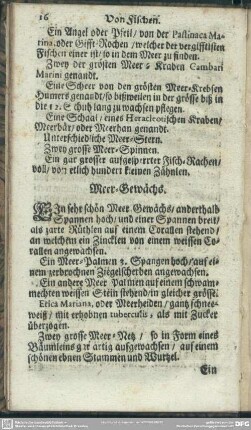 16 Von Fischen.
Ein Angel oder Pfeil / von der Pastinaca Ma-
rina, oder Gifft-Rochen / welcher der vergifftisten
Fischen einer ist / so in dem Meer zu finden.
Zwey der grösten Meer-Kraben Cambari
Marini genandt.
Eine Scheer von den grösten Meer-Krebsen
Humers genandt / so bißweilen in der grösse biß in
die 12. Schuh lang zu wachsen pflegen.
Eine Schaal / eines Heracleotischen Kraben /
Meerbär / oder Meerhan genandt.
Unterschidliche Meer-Stern.
Zwey grosse Meer-Spinnen.
Ein gar grosser auffgesperrter Fisch-Rachen /
voll / von etlich hundert kleinen Zähnlen.
Meer-Gewächs.
EIn sehr schön Meer Gewächs / anderthalb
Spannen hoch / und einer Spannen breit /
als zarte Rüthlen auf einem Corallen stehend /
an welchem ein Zincklen von einem weissen Co-
rallen angewachsen.
Ein Meer-Palmen 3. Spangen hoch / auf ei-
nem zerbrochnen Ziegelscherben angewachsen.
Ein andere Meer Palmen auf einem schwam-
mechten weissen Stein stehend / in gleicher grösse.
Erica Mariana, oder Meerheiden / gantz schnee-
weiß / mit erhobnen tuberculis, als mit Zucker
überzogen.
Zwey grosse Meer-Netz / so in Form eines
Bäumleins gar artig aufgewachsen / auf einem
schönen ebnen Stammen und Wurtzel.
Ein